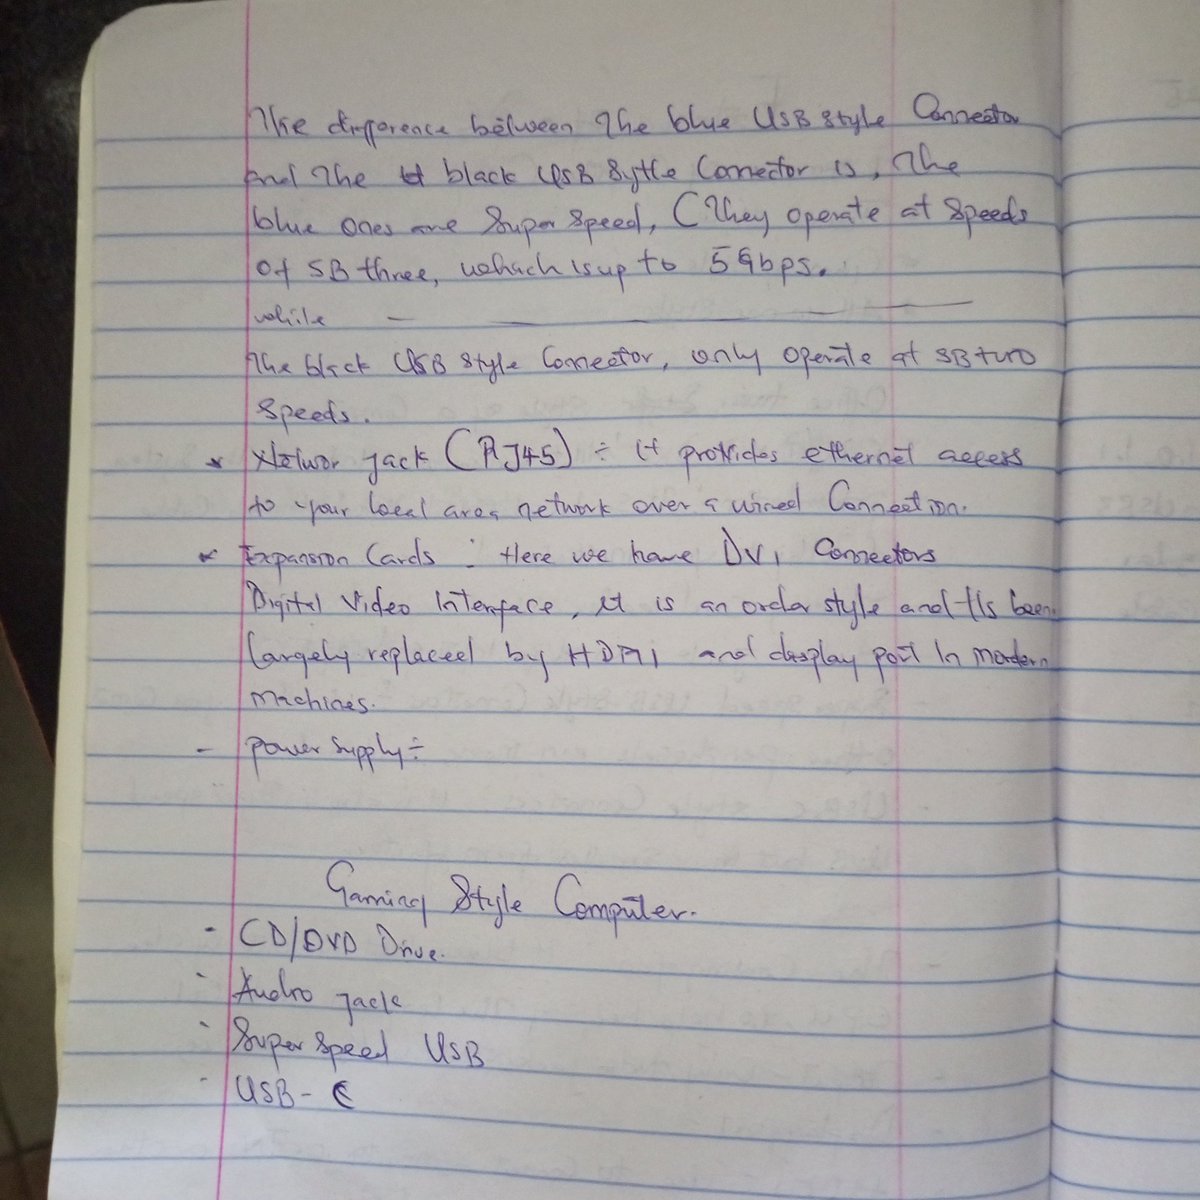 The difference between The blue USB style Connector
and The black USB Sytle Connector is, The
blue ones are Super Speed, (They operate at Speeds
Of SB three, whach is up to 5Gbps.
while
The black USB style Connector, only operate at SB two
Speeds.
* Networ jack (RJ45) ÷ it provides ethernet access
to your local area network over a wired Connection.
* Expansion Cards : Here we have DVI Connectors
Digital Video Interface, it is an order style and it's been
largely replaced by HDMI and display port In mordern
machines.
- power supply ÷
Gaming Style Computer.
- CD/DVD Drive.
- Audio jack
- Super Speed USB
- USB - C